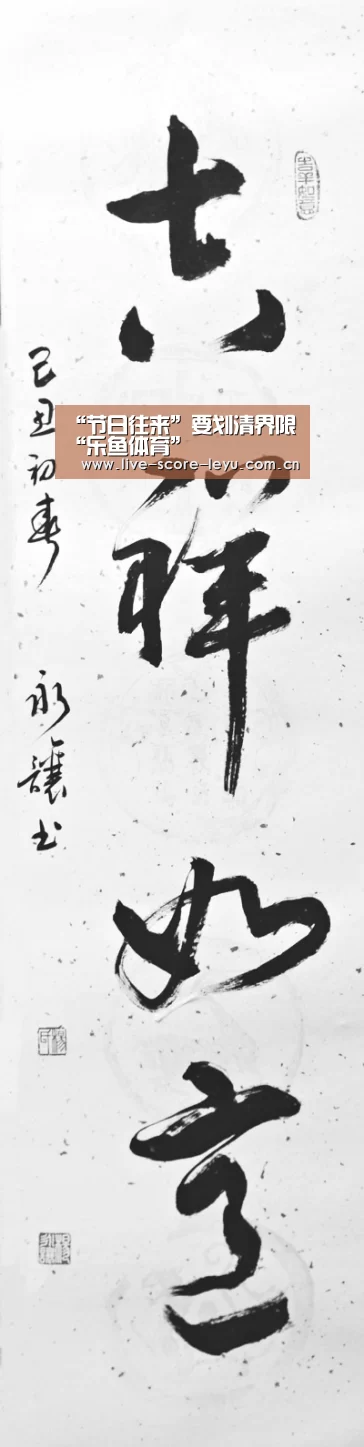 吉祥如意
吉祥如意
“节日往来”要划清界限
“乐鱼体育”
www.live-score-leyu.com.cn
己丑初春 永讓书